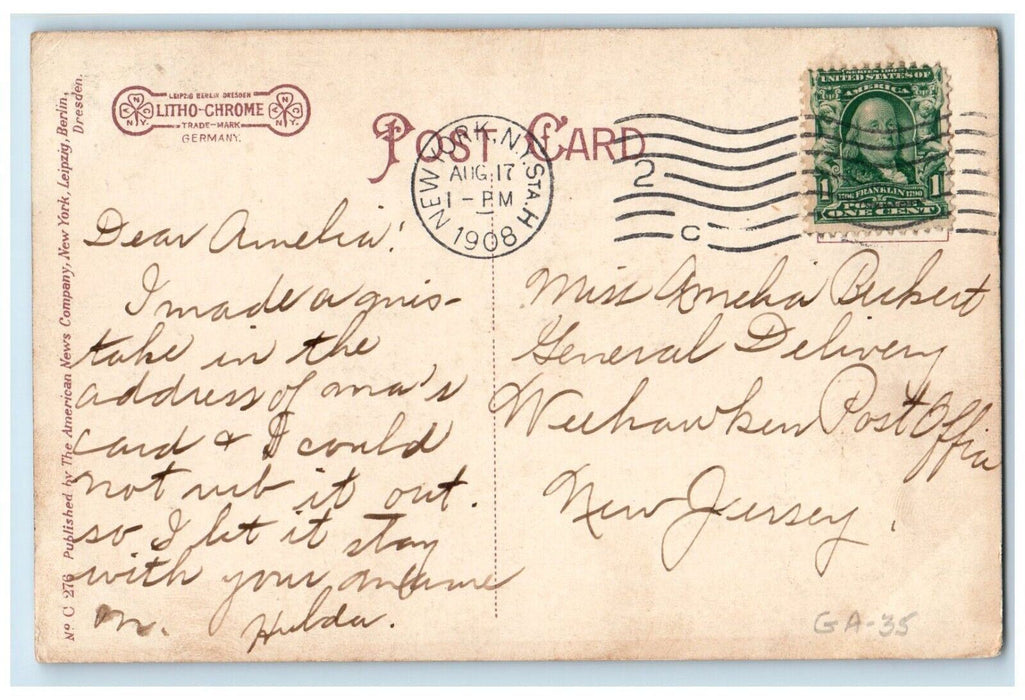 LEIPZIG BERLIN DRESDEN
LITHO-CHROME
TRADE-MARK
GERMANY.
N.Y.
N.Y.
POST CARD
NEW YORK, N.Y. STA. H
AUG. 17
1 - PM
1908
2
C
SERIES 1902
UNITED STATES OF
AMERICA
1706 FRANKLIN 1790
1 1
POSTAGE
ONE CENT
Nº C 276 Published by The American News Company, New York, Leipzig, Berlin,
Dresden.
Dear Amelia!
I made a mis-
take in the
address of ma's
card & I could
not rub it out.
so I let it stay
with your name
M. Hulda.
Miss Amelia Beckert
General Delivery
Weehawken Post Office
New Jersey.
GA-35